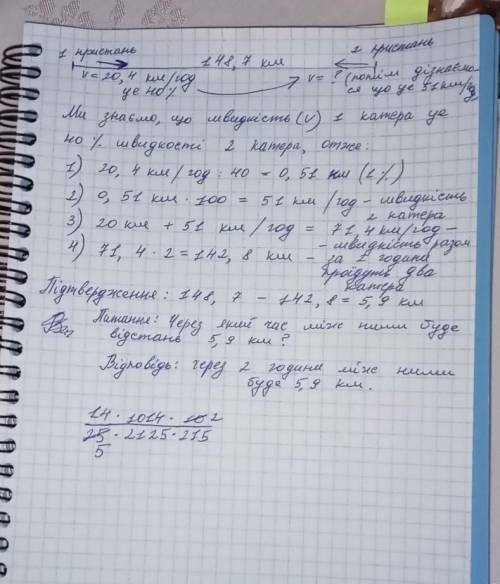 1 пристань 148,7 км 2 пристань
v=20,4 км/год v=? (потім дізнаємо-
це 40% ся що це 51км/год
Ми знаємо, що швидкість (v) 1 катера це
40 % швидкості 2 катера, отже:
1) 20,4 км/год : 40 = 0,51 км (1%)
2) 0,51 км · 100 = 51 км/год - швидкість
2 катера
3) 20 км + 51 км/год = 71,4 км/год -
- швидкість разом
4) 71,4 · 2 = 142,8 км - за 2 години
пройдуть два
катера
Підтвердження: 148,7 - 142,8 = 5,9 км
Питання: Через який час між ними буде
відстань 5,9 км?
Відповідь: через 2 години між ними
буде 5,9 км.
14 · 1014 · 10 2
25 · 2125 · 275
5